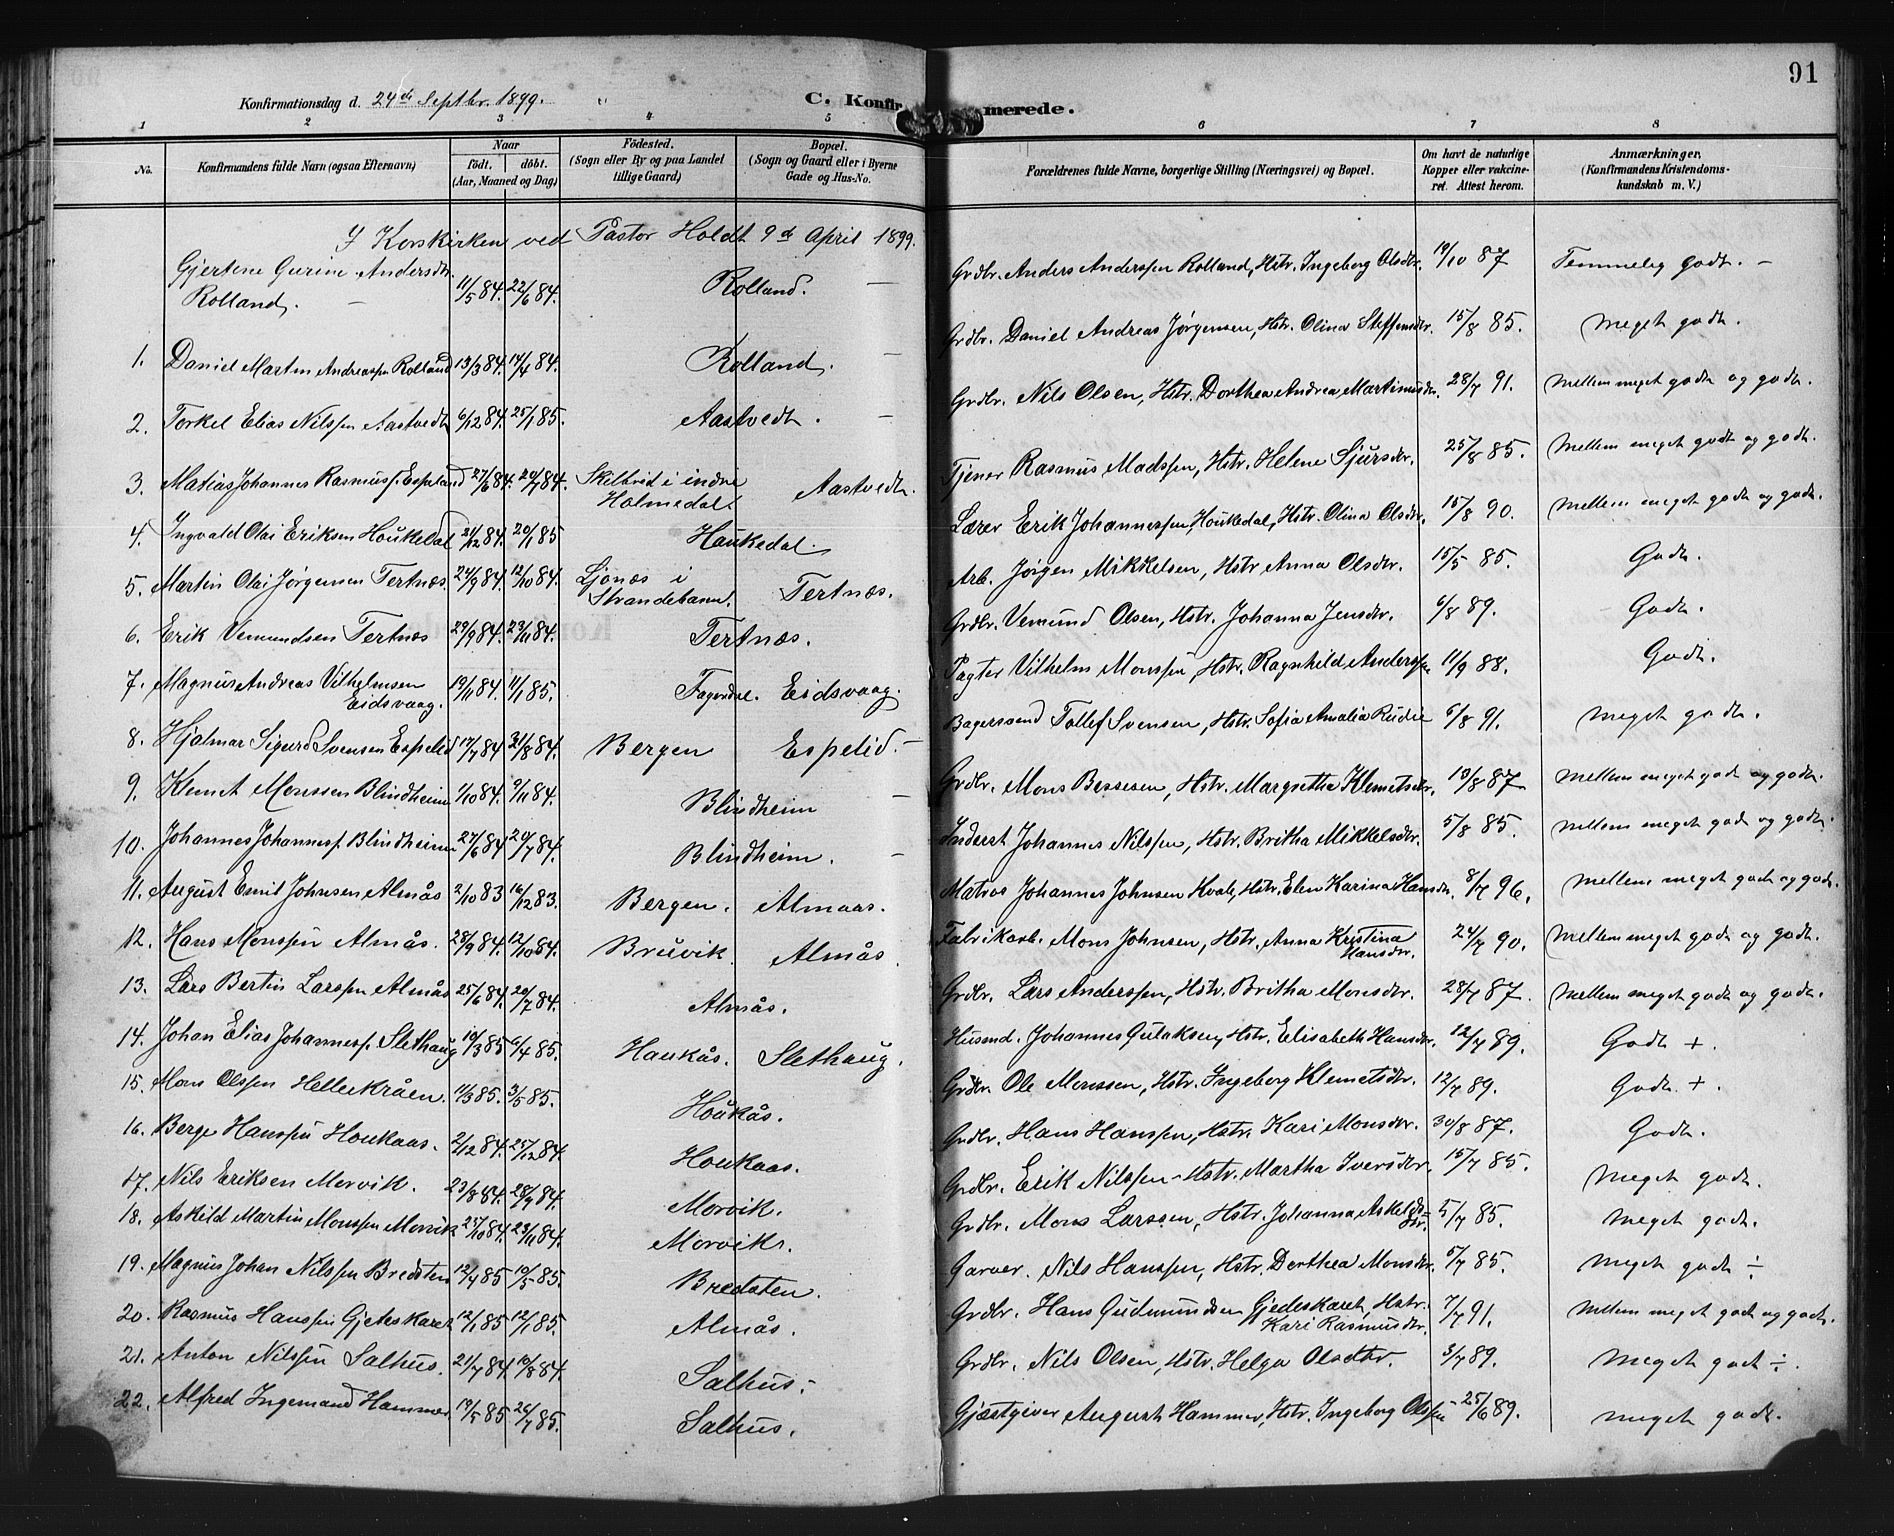 91
Konfirmationsdag d. 24de Septbr. 1899.
C. Konfirmerede.
1 2 3 4 5 6 7 8
No.
Konfirmandens fulde Navn (ogsaa Efternavn)
Naar
födt. döbt.
(Aar, Maaned og Dag)
Födested.
(Sogn eller By og paa Landet
tillige Gaard)
Bopæl.
(Sogn og Gaard eller i Byerne
Gade og Hus-No.
Forældrenes fulde Navne, borgerlige Stilling (Næringsvei) og Bopæl.
Om havt de naturlige
Kopper eller vakcine-
ret. Attest herom.
Anmærkninger,
(Konfirmandens Kristendoms-
kundskab m. V.)
I Korskirken ved Pastor Holdt 9d April 1899.
Gjertine Gurine Andersdtr. Rolland. 11/5 84. 22/6 84. Rolland. Grdbr. Anders Anderssen Rolland, Hstr. Ingeborg Olsdtr. 19/10 87 Temmelig godt.
1. Daniel Martin Andreassen Rolland 13/3 84. 14/4 84. Rolland. Grdbr. Daniel Andreas Jørgensen, Hstr. Olina Steffensdtr. 15/8 85. Meget godt.
2. Torkel Elias Nilssen Aastvedt 6/12 84. 25/1 85. Aastvedt. Grdbr. Nils Olsen, Hstr. Dorthea Andrea Martinusdtr. 28/7 91. Mellem meget godt og godt.
3. Matias Johannes Rasmuss. Espeland 27/6 84. 20/7 84. Skilbrid i indre Holmedal. Aastvedt. Tjener Rasmus Madssen, Hstr. Helene Sjursdtr. 25/8 85. Mellem meget godt og godt.
4. Ingvald Olai Eriksen Houkedal 21/12 84. 20/1 85 Haukedal. Lærer Erik Johannessen, Houkedal, Hstr. Olina Olsdtr. 15/8 90. Mellem meget godt og godt.
5. Martin Olai Jørgensen Tertnæs. 24/9 84. 12/10 84. Ljonæs i Strandebarm. Tertnæs. Arb. Jørgen Mikkelsen, Hstr Anna Olsdtr. 15/5 85. Godt.
6. Erik Vemundsen Tertnæs 29/9 84. 23/11 84. Tertnæs. Grdbr. Vemund Olsen, Hstr. Johanna Jensdtr. 6/8 89. Godt.
7. Magnus Andreas Vilhelmsen Eidsvaag. 19/11 84. 11/1 85. Fagerdal. Eidsvaag. Pagter Vilhelm Monssen, Hstr. Ragnhild Anderssen 11/9 88. Godt.
8. Hjalmar Sigurd Svensen Espelid 17/7 84 31/8 84. Bergen Espelid. Bagersvend Tollef Svensen, Hstr. Sofia Amalia Rudie 6/8 91. Meget godt.
9. Klemet Monssen Blindheim 1/10 84. 9/11 84. Blindheim Grdbr. Mons Bessesen, Hstr. Margretha Klemetsdtr. 13/8 87 Mellem meget godt og godt.
10. Johannes Johanness. Blindheim 27/6 84 20/7 84. Blindheim. Inderst Johannes Nilssen, Hstr. Britha Mikkelsdtr. 5/8 85. Mellem meget godt og godt.
11. August Emil Johnsen Almås 2/10 83 16/12 83. Bergen. Almaas. Matros Johannes Johnsen Kvale, Hstr. Elen Karina Hansdtr. 8/7 96. Mellem meget godt og godt.
12. Hans Monssen Almås. 28/9 84. 12/10 84. Bruvik. Almås. Fabrikarb. Mons Johnsen, Hstr. Anna Kristina Hansdtr. 24/7 90. Mellem meget godt og godt.
13. Lars Bertin Larssen Almås 25/6 84. 20/7 84. Almås. Grdbr. Lars Anderssen, Hstr. Britha Monsdtr. 28/7 87. Mellem meget godt og godt.
14. Johan Elias Johanness. Slethaug 10/3 85 6/4 85. Haukås. Slethaug. Husmd. Johannes Gulaksen, Hstr. Elisabeth Hansdtr. 12/7 89. Godt +.
15. Mons Olssen Hellekråen. 11/3 85. 3/5 85. Houkås. Grdbr. Ole Monssen, Hstr. Ingeborg Klemetsdtr. 12/7 89. Godt. +.
16. Berge Hanssen Houkaas. 2/12 84. 25/12 84. Houkaas. Grdbr. Hans Hanssen, Hstr. Kari Monsdtr. 30/8 87. Godt.
17. Nils Eriksen Morvik. 23/8 84. 28/9 84. Morvik. Grdbr. Erik Nilssen - Hstr. Martha Iversdtr. 15/7 85. Meget godt.
18. Askild Martin Monssen Morvik 25/10 84. 23/11 84. Morvik. Grdbr. Mons Larssen, Hstr. Johanna Askelsdtr. 5/7 85. Meget godt.
19. Magnus Johan Nilssen Bredsten 12/4 85 10/5 85. Bredsten. Garver. Nils Hanssen, Hstr. Dorthea Monsdtr. 5/7 85. Meget godt ÷
20. Rasmus Hanssen Gjeteskaret 12/1 85 12/1 85. Almås. Grdbr. Hans Gudmundsen Gjedeskaret, Hstr. Kari Rasmusdtr. 7/7 91. Mellem meget godt og godt.
21. Anton Nilssen Salhus. 21/7 84. 10/8 84. Salhus. Grdbr. Nils Olsen, Hstr. Helga Olsdtr. 3/7 89. Meget godt ÷.
22. Alfred Ingemand Hammer 19/5 85 26/7 85. Salhus. Gjæstgiver August Hammer, Hstr. Ingeborg Olssen 25/6 89. Meget godt.